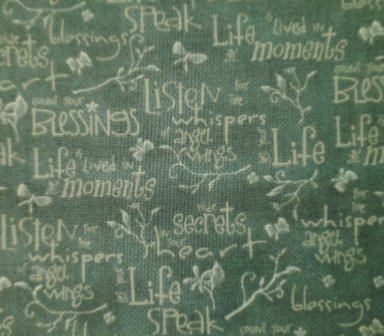 speak
Life is lived in
moments
blessings
secrets
heart
count your
BLESSINGS
Listen for the
whispers
of angel
wings
Life
Life is lived in
moments
the secrets
heart
Listen for the
whispers
of angel
wings
whispers
angel
wings
Life
speak
blessings
count your